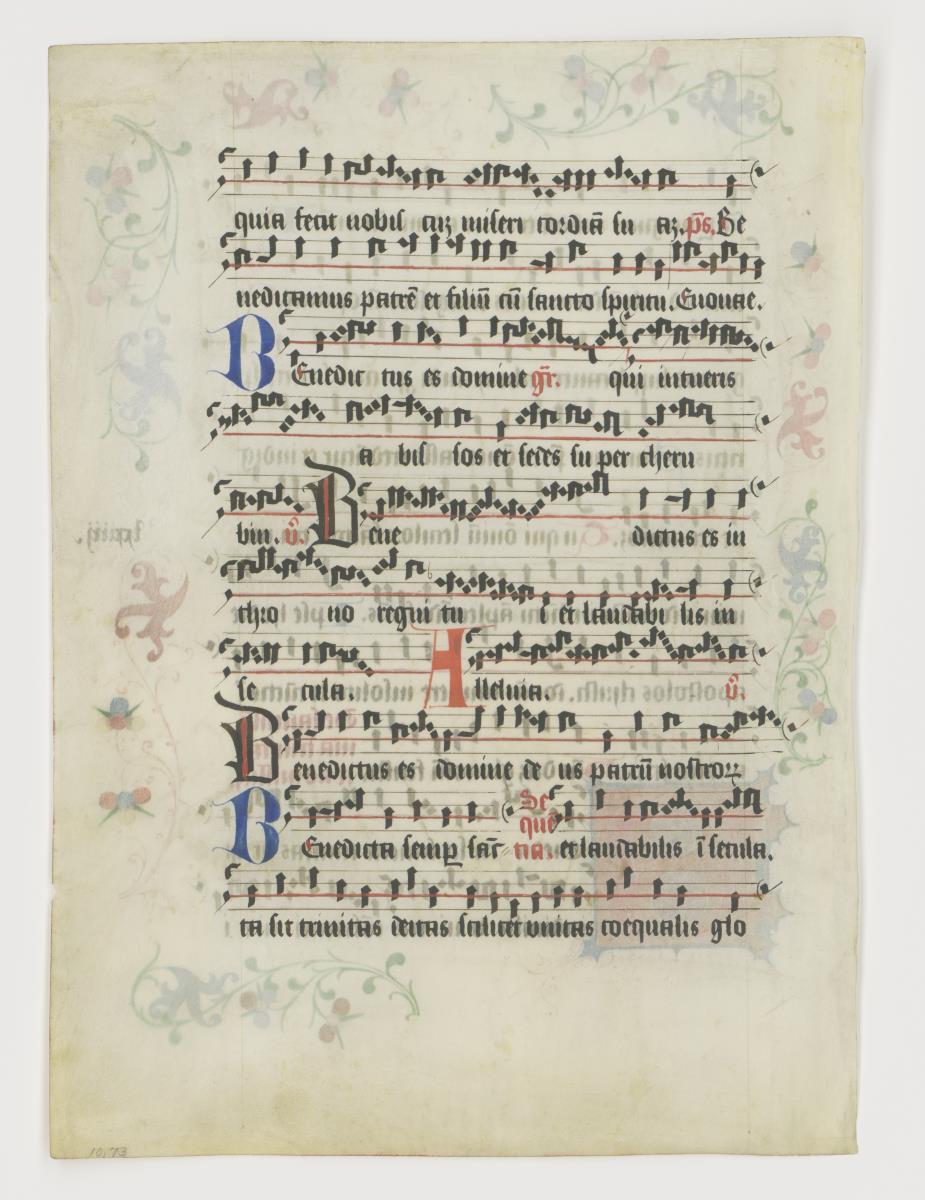 quia fecit nobis cuʒ miseri cordiā su aʒ. p̄s. Be
nedicamus patrē et filiū cū sancto spiritu. Euouae.
BEnedic tus es domine gr̄. qui intueris
a bis sos et sedes su per cheru
bin. v̊. Bene dictus es in
thro no regni tu i et laudabi lis in
se cula. Alleluia. v̊.
Benedictus es domine de us patrū nostroꝝ
Se
BEnedicta semp̱ sāc quē et laudabilis ī secula.
tia.
ta sit trinitas deitas scilicet unitas coequalis glo
10.73